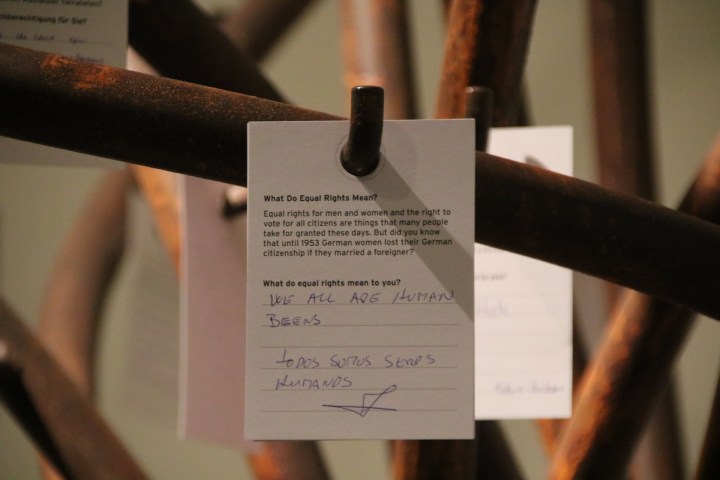 chberechtigung für Sie?
What Do Equal Rights Mean?
Equal rights for men and women and the right to
vote for all citizens are things that many people
take for granted these days. But did you know
that until 1953 German women lost their German
citizenship if they married a foreigner?
What do equal rights mean to you?
WE ALL ARE HUMAN
BEENS
todos somos seres
HUMANOS